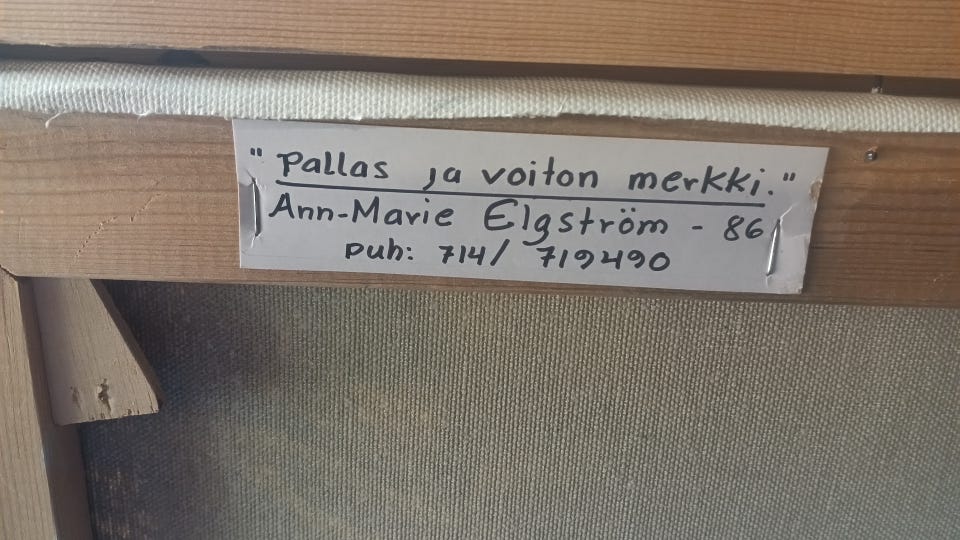 "Pallas ja voiton merkki."
Ann-Marie Elgström - 86
puh: 714/ 719490